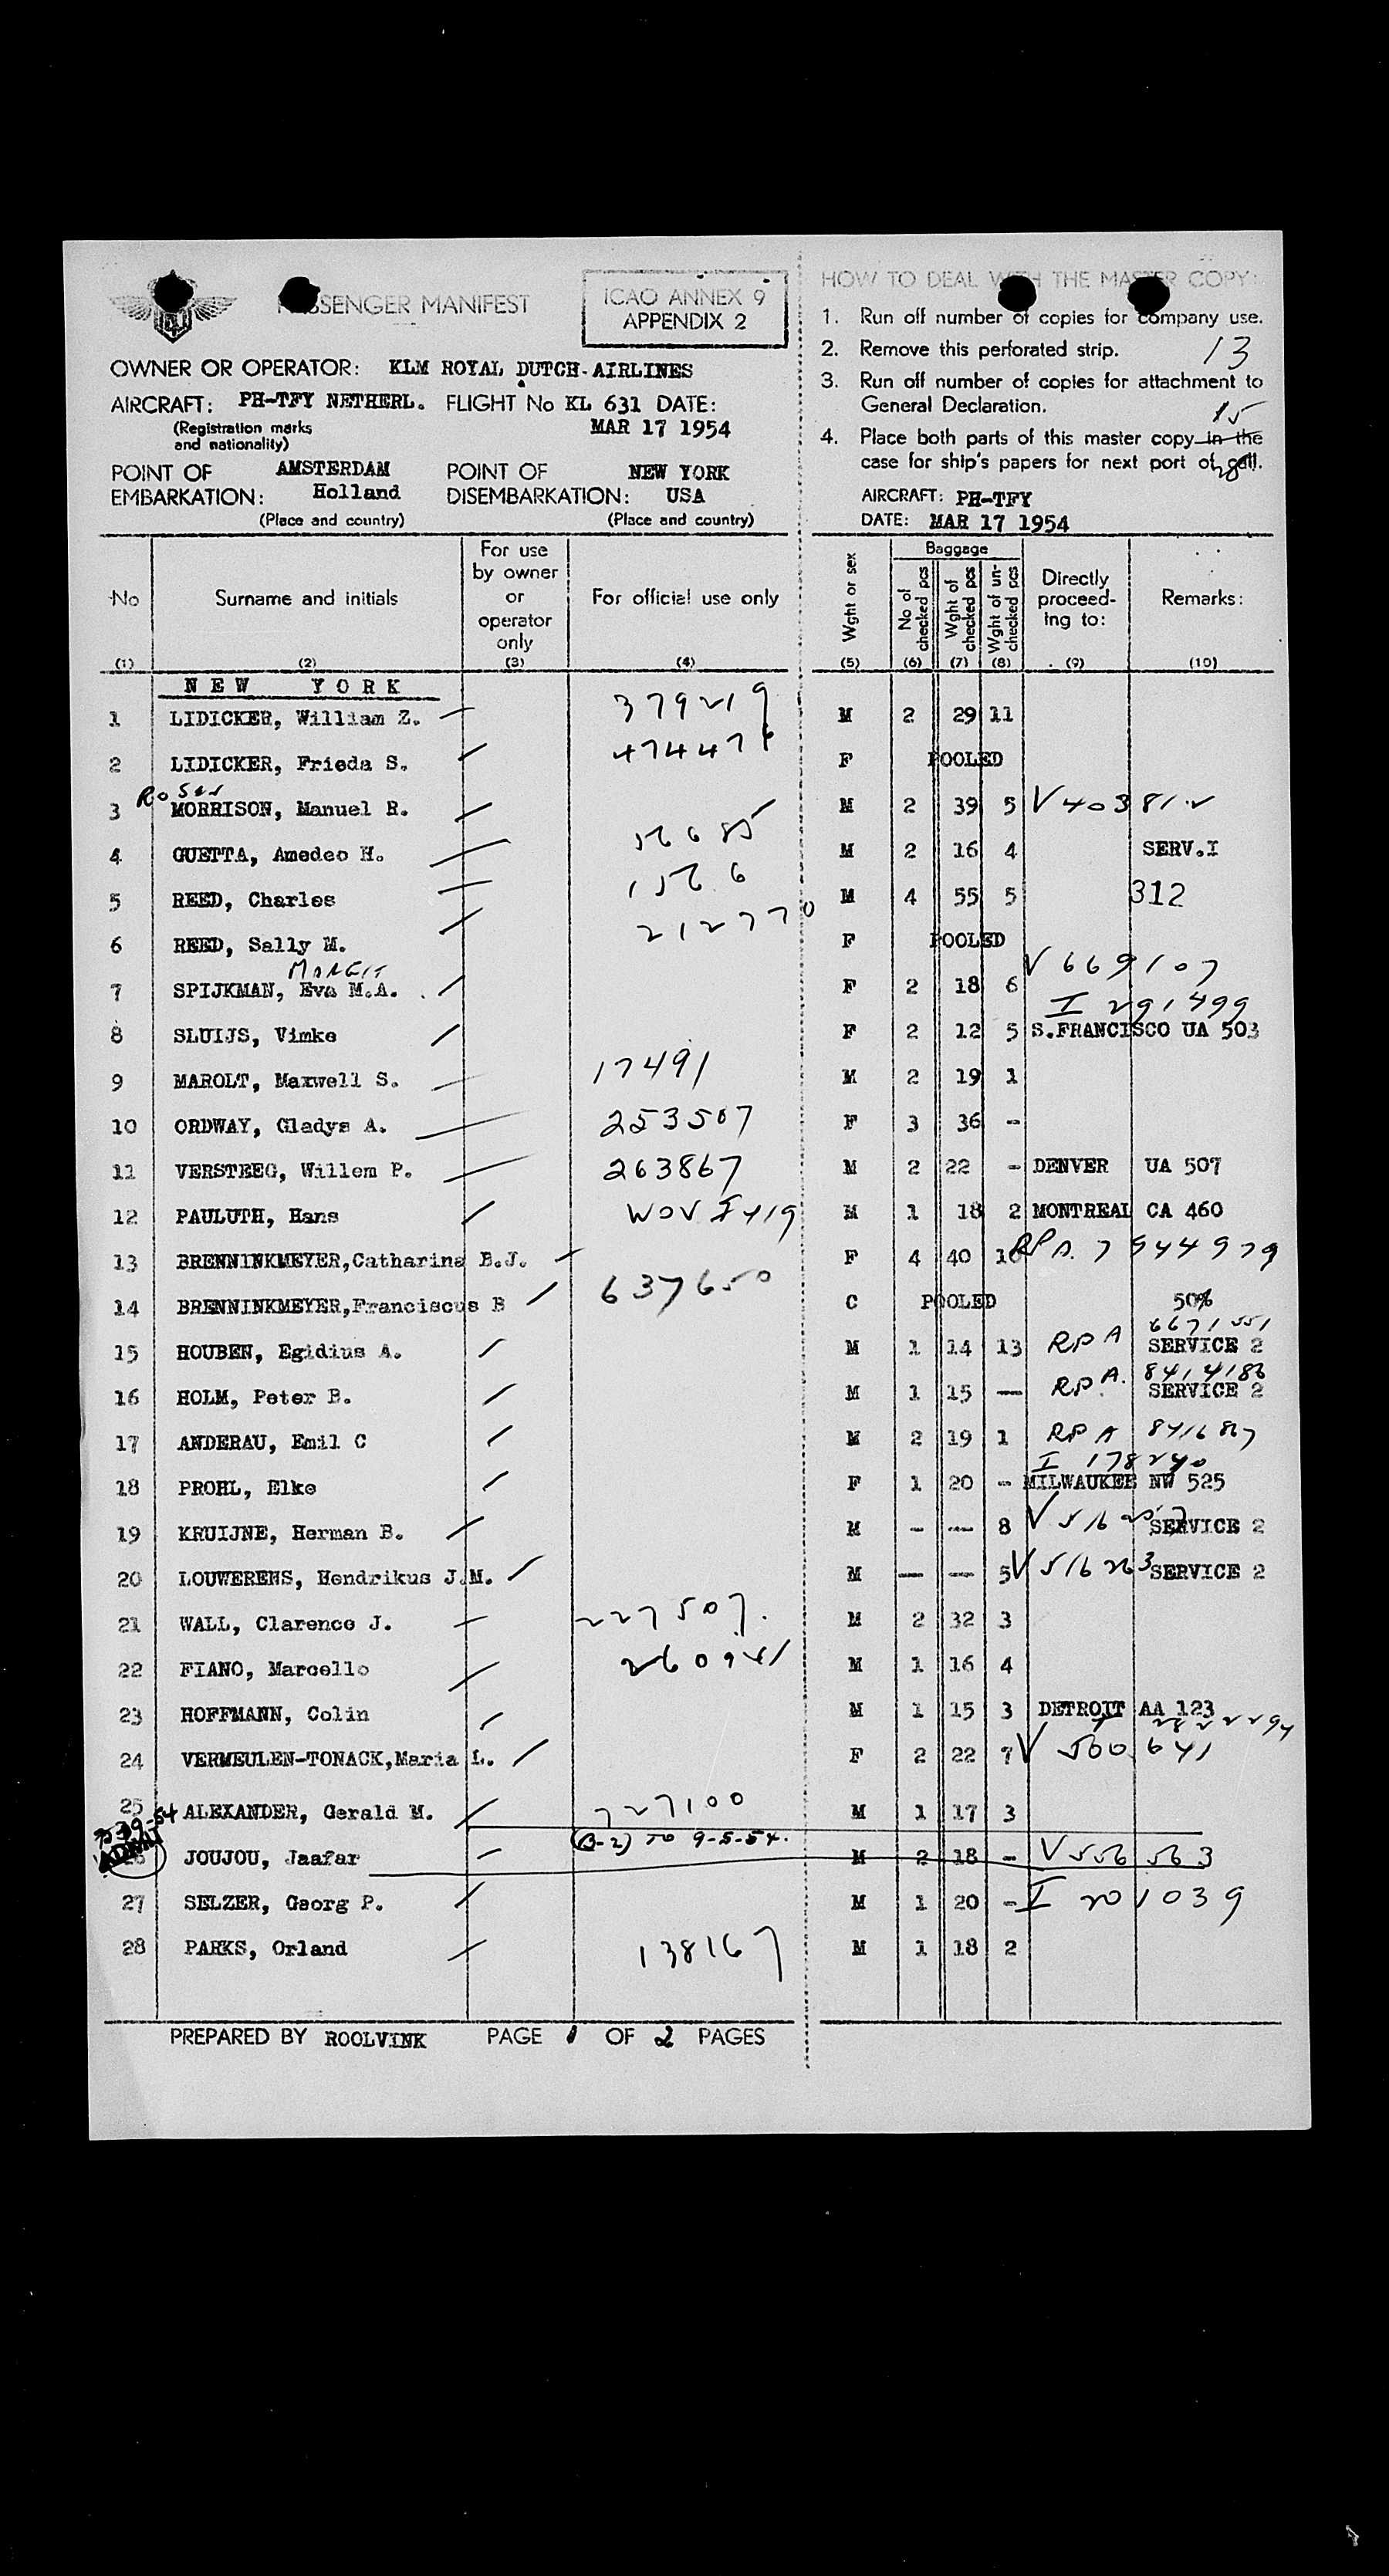 PASSENGER MANIFEST
ICAO ANNEX 9
APPENDIX 2
OWNER OR OPERATOR: KLM ROYAL DUTCH-AIRLINES
AIRCRAFT: PH-TFY NETHERL. FLIGHT No KL 631 DATE:
(Registration marks
and nationality)
MAR 17 1954
POINT OF EMBARKATION: AMSTERDAM Holland
(Place and country)
POINT OF DISEMBARKATION: NEW YORK USA
(Place and country)
HOW TO DEAL WITH THE MASTER COPY:
1. Run off number of copies for company use.
2. Remove this perforated strip. 13
3. Run off number of copies for attachment to
General Declaration. 15
4. Place both parts of this master copy in the
case for ship's papers for next port of call.
AIRCRAFT: PH-TFY
DATE: MAR 17 1954
No (1)
Surname and initials (2)
For use by owner or operator only (3)
For official use only (4)
Wght or sex (5)
Baggage
No of checked pcs (6)
Wght of checked pcs (7)
Wght of un-checked pcs (8)
Directly proceed-ing to: (9)
Remarks: (10)
NEW YORK
1 LIDICKER, William Z. 379219 M 2 29 11
2 LIDICKER, Frieda S. F POOLED
3 MORRISON, Manuel R. M 2 39 5
4 GUETTA, Amedeo H. M 2 16 4 SERV.I
5 REED, Charles M 4 55 5 312
6 REED, Sally M. 212770 F POOLED
MARGIT
7 SPIJKMAN, Eva M.A. F 2 18 6 V 669107
I 291499
8 SLUIJS, Vimke F 2 12 5 S.FRANCISCO UA 503
9 MAROLT, Maxwell S. 17491 M 2 19 1
10 ORDWAY, Gladys A. 253507 F 3 36 -
11 VERSTEEG, Willem P. 263867 M 2 22 - DENVER UA 507
12 PAULUTH, Hans M 1 18 2 MONTREAL CA 460
13 BRENNINKMEYER,Catharina B.J. F 4 40 10 RPA. 7944979
14 BRENNINKMEYER,Franciscus B 637650 C POOLED 50%
15 HOUBEN, Egidius A. M 1 14 13 RPA SERVICE 2
16 HOLM, Peter B. M 1 15 — RPA. 8414186 SERVICE 2
17 ANDERAU, Emil C M 2 19 1 RPA
I 178240
18 PROHL, Elke F 1 20 - MILWAUKEE NW 525
19 KRUIJNE, Herman B. M - — 8 SERVICE 2
20 LOUWERENS, Hendrikus J.M. M — — 5 V 516263 SERVICE 2
21 WALL, Clarence J. 227507. M 2 32 3
22 FIANO, Marcello 260941 M 1 16 4
23 HOFFMANN, Colin M 1 15 3 DETROIT AA 123
24 VERMEULEN-TONACK,Maria L. F 2 22 7 V 500641
25 ALEXANDER, Gerald M. 727100 M 1 17 3
ADMIT
(B-2) TO 9-5-54.
26 JOUJOU, Jaafar M 2 18 - V556563
27 SELZER, Georg P. M 1 20 - I 201039
28 PARKS, Orland 138167 M 1 18 2
PREPARED BY ROOLVINK PAGE 1 OF 2 PAGES